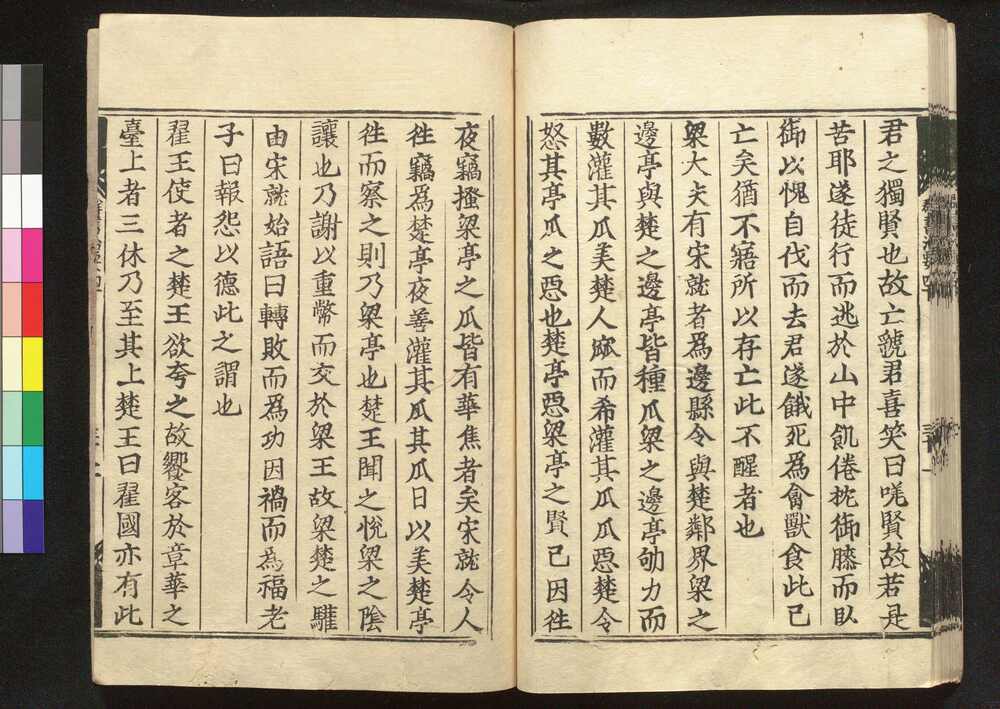 君之獨賢也故亡虢君喜笑曰嗟賢故若是
苦耶遂徒行而逃於山中飢倦枕御膝而臥
御以愧自伐而去君遂餓死為禽獸食此已
亡矣猶不寤所以存亡此不醒者也
梁大夫有宋就者為邊縣令與楚鄰界梁之
邊亭與楚之邊亭皆種瓜梁之邊亭劬力而
數灌其瓜美楚人窳而希灌其瓜瓜惡楚令
怒其亭瓜之惡也楚亭惡梁亭之賢己因往
夜竊搔梁亭之瓜皆有華焦者矣宋就令人
往竊為楚亭夜善灌其瓜其瓜日以美楚亭
往而察之則乃梁亭也楚王聞之悅梁之陰
讓也乃謝以重幣而交於梁王故梁楚之驩
由宋就始語曰轉敗而為功因禍而為福老
子曰報怨以德此之謂也
翟王使者之楚王欲夸之故饗客於章華之
臺上者三休乃至其上楚王曰翟國亦有此